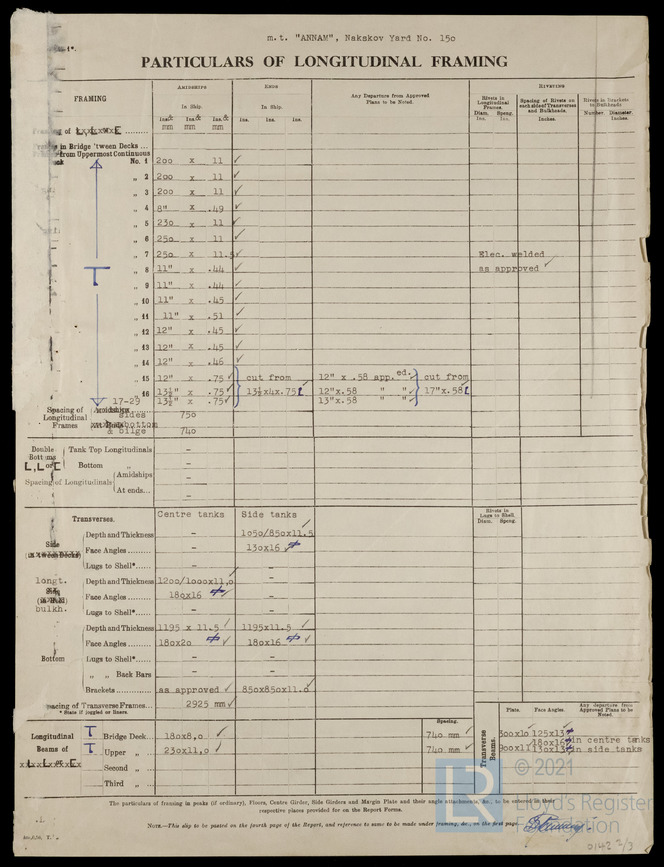 m.t. "ANNAM", Nakskov Yard No. 150
PARTICULARS OF LONGITUDINAL FRAMING
FRAMING
AMIDSHIPS
ENDS
Any Departure from Approved Plans to be Noted.
RIVETING
In Ship.
In Ship.
Rivets in Longitudinal Frames.
Spacing of Rivets on each side of Transverses and Bulkheads.
Rivets in Brackets to Bulkheads
Ins.& mm Ins.& mm Ins.& mm
Ins. Ins. Ins.
Diam. Ins. Spcng. Ins.
Inches.
Number. Diameter. Inches.
in Bridge 'tween Decks ...
from Uppermost Continuous
No. 1 200 x 11 ✓
„ 2 200 x 11 ✓
„ 3 200 x 11 ✓
„ 4 8" x .49 ✓
„ 5 230 x 11 ✓
„ 6 250 x 11 ✓
„ 7 250 x 11.5 ✓ Elec. welded
T „ 8 11" x .44 ✓ as approved ✓
„ 9 11" x .44 ✓
„ 10 11" x .45 ✓
„ 11 11" x .51 ✓
„ 12 12" x .45 ✓
„ 13 12" x .45 ✓
„ 14 12" x .46 ✓
„ 15 12" x .75 ✓ cut from 12" x .58 app.ed. ✓ cut from
„ 16 13½" x .75 ✓ 13½x4x.75[ 12"x.58 " ". ✓ 17"x.58[
17-29 13½" x .75 ✓ 13"x.58 " " ✓
Spacing of Longitudinal Frames
sides 750
bottom & bilge 740
Double Bottoms
L, L or [
Tank Top Longitudinals –
Bottom „ –
Spacing of Longitudinals
Amidships –
At ends... –
Transverses. Centre tanks Side tanks
Rivets in Lugs to Shell.
Diam. Spcng.
Side
Depth and Thickness – 1050/850x11.5 ✓
Face Angles ......... – 130x16 ✓
Lugs to Shell*...... – –
longt. bulkh.
Depth and Thickness 1200/1000x11,0 –
Face Angles ......... 180x16 ✓ –
Lugs to Shell*...... – –
Bottom
Depth and Thickness 1195 x 11.5 ✓ 1195x11.5 ✓
Face Angles ......... 180x20 ✓ 180x16 ✓
Lugs to Shell*...... – –
„ „ Back Bars – –
Brackets ............ as approved ✓ 850x850x11.0 ✓
Spacing of Transverse Frames... 2925 mm ✓
* State if joggled or liners.
Plate. Face Angles. Any departure from Approved Plans to be Noted.
Longitudinal Beams of
Spacing.
T Bridge Deck. 180x8,0 ✓ 740 mm ✓
T Upper „ 230x11,0 ✓ 740 mm ✓
Second „
Third „
Transverse Beams.
125x13
180x16 in centre tanks
130x13 in side tanks
The particulars of framing in peaks (if ordinary), Floors, Centre Girder, Side Girders and Margin Plate and their angle attachments, &c., to be entered in their
respective places provided for on the Report Forms.
NOTE.—This slip to be pasted on the fourth page of the Report, and reference to same to be made under framing, &c., on the first page.
© 2021
LR
Lloyd's Register
Foundation
0142 2/3